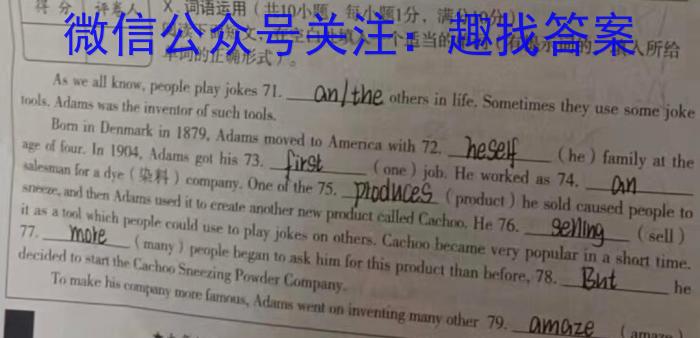 得 分 评卷人 X. 词语运用（共10小题，每小题1分，满分10分）
微信公众号关注：趣找答案
单词的正确形式）。
As we all know, people play jokes 71. an/the others in life. Sometimes they use some joke
tools. Adams was the inventor of such tools.
Born in Denmark in 1879, Adams moved to America with 72. heself (he) family at the
age of four. In 1904, Adams got his 73. first (one) job. He worked as 74. an
salesman for a dye (染料) company. One of the 75. produces (product) he sold caused people to
sneeze, and then Adams used it to create another new product called Cachoo. He 76. selling (sell)
it as a tool which people could use to play jokes on others. Cachoo became very popular in a short time.
77. more (many) people began to ask him for this product than before, 78. But he
decided to start the Cachoo Sneezing Powder Company.
To make his company more famous, Adams went on inventing many other 79. amaze (amaze)